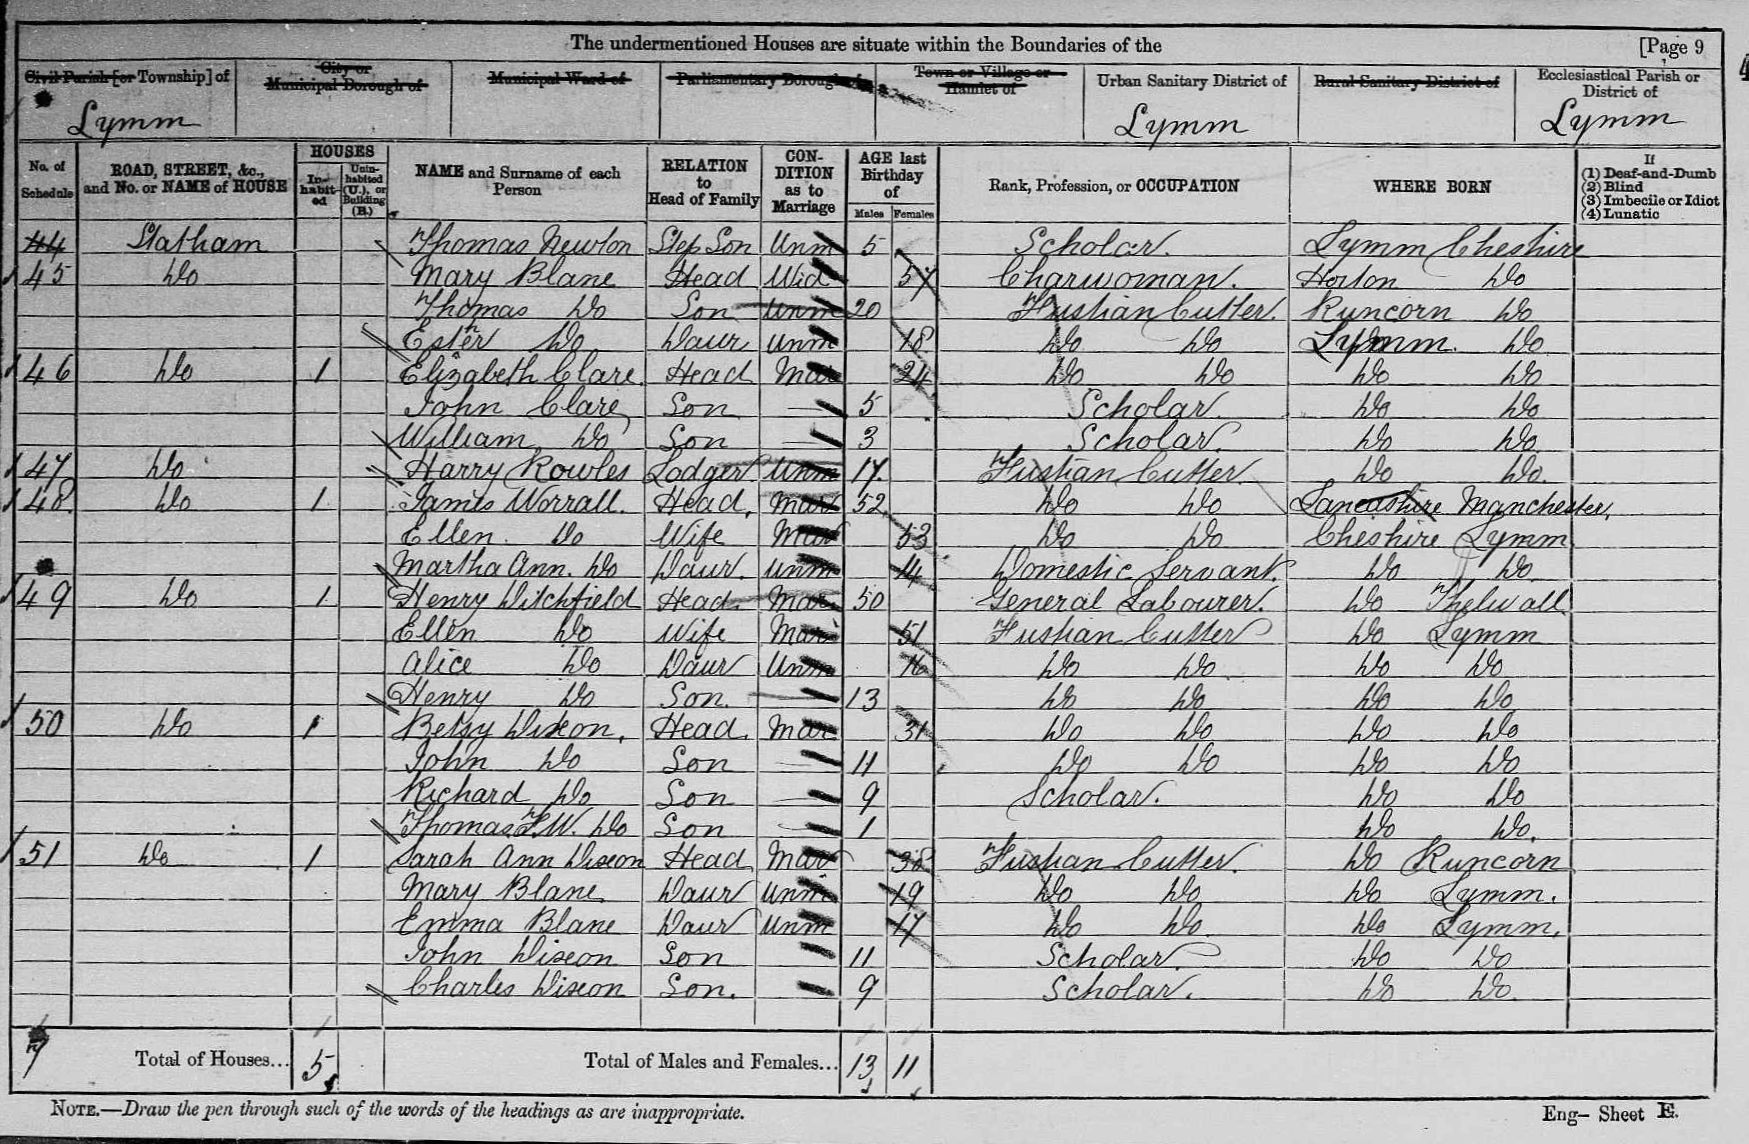 The undermentioned Houses are situate within the Boundaries of the [Page 9
Civil Parish [or Township] of City or Municipal Borough of Municipal Ward of Parliamentary Borough of Town or Village or Hamlet of Urban Sanitary District of Rural Sanitary District of Ecclesiastical Parish or District of
Lymm Lymm Lymm
No. of Schedule ROAD, STREET, &c., and No. or NAME of HOUSE HOUSES Inhabited Uninhabited (U.), or Building (B.) NAME and Surname of each Person RELATION to Head of Family CONDITION as to Marriage AGE last Birthday of Males Females Rank, Profession, or OCCUPATION WHERE BORN If (1) Deaf-and-Dumb (2) Blind (3) Imbecile or Idiot (4) Lunatic
44 Statham Thomas Newton Step Son Unm 5 Scholar. Lymm Cheshire
45 Do Mary Blane Head Wid 57 Charwoman. Horton Do
Thomas Do Son Unm 20 Fustian Cutter. Runcorn Do
Esther Do Daur Unm 18 Do Do Lymm Do
46 Do 1 Elizabeth Clare Head Mar 24 Do Do Do Do
John Clare Son 5 Scholar. Do Do
William Do Son 3 Scholar. Do Do
47 Do Harry Rowles Lodger Unm 17 Fustian Cutter Do Do.
48 Do 1 James Worrall. Head, Mar 52 Do Do Lancashire Manchester,
Ellen. Do Wife Mar 53 Do Do Cheshire Lymm
Martha Ann. Do Daur. Unm 14 Domestic Servant. Do Do
49 Do 1 Henry Ditchfield Head. Mar. 50 General Labourer. Do Thelwall
Ellen Do Wife Mar 51 Fustian Cutter Do Lymm
Alice Do Daur Unm 16 Do Do Do Do
Henry Do Son. 13 Do Do Do Do
50 Do 1 Betsy Dixon, Head. Mar 31 Do Do Do Do
John Do Son 11 Do Do Do Do
Richard Do Son 9 Scholar. Do Do
Thomas F.W. Do Son 1 Do Do.
51 Do 1 Sarah Ann Dixon Head Mar 38 Fustian Cutter. Do Runcorn
Mary Blane Daur Unm 19 Do Do Do Lymm.
Emma Blane Daur Unm 17 Do Do. Do Lymm.
John Dixon Son 11 Scholar. Do Do
Charles Dixon Son. 9 Scholar. Do Do.
7 Total of Houses... 5 Total of Males and Females... 13 11
NOTE.—Draw the pen through such of the words of the headings as are inappropriate. Eng– Sheet E.